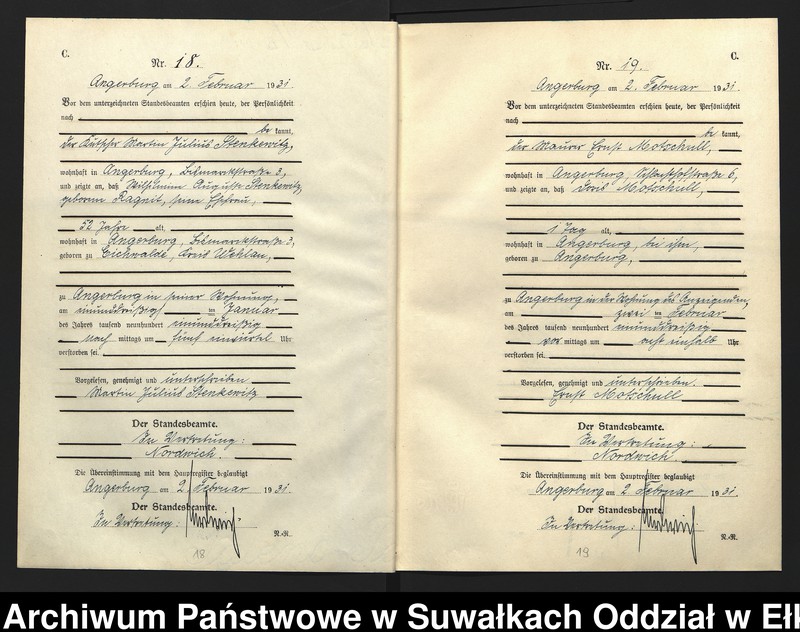 C.
Nr. 18.
Angerburg am 2. Februar 1931.
Vor dem unterzeichneten Standesbeamten erschien heute, der Persönlichkeit
nach
be kannt,
der Kutscher Martin Julius Stenkewitz,
wohnhaft in Angerburg, Bismarckstraße 3,
und zeigte an, daß Wilhelmine Auguste Stenkewitz,
geborene Ragnit, seine Ehefrau,
52 Jahre alt,
wohnhaft in Angerburg, Bismarckstraße 3,
geboren zu Eichwalde, Kreis Wehlau,
zu Angerburg in seiner Wohnung,
am einunddreißigsten Januar
des Jahres tausend neunhundert einunddreißig
nach mittags um fünf einviertel Uhr
verstorben sei.
Vorgelesen, genehmigt und unterschrieben
Martin Julius Stenkewitz
Der Standesbeamte.
In Vertretung:
Nordwich.
Die Übereinstimmung mit dem Hauptregister beglaubigt
Angerburg am 2. Februar 1931.
Der Standesbeamte.
In Vertretung:
N.-R.
18
C.
Nr. 19.
Angerburg am 2. Februar 1931.
Vor dem unterzeichneten Standesbeamten erschien heute, der Persönlichkeit
nach
be kannt,
der Maurer Ernst Motschull,
wohnhaft in Angerburg, Schlachthofstraße 6,
und zeigte an, daß Doris Motschull,
1 Tag alt,
wohnhaft in Angerburg, bei ihm,
geboren zu Angerburg,
zu Angerburg in der Wohnung des Anzeigenden,
am zwei ten Februar
des Jahres tausend neunhundert einunddreißig
vor mittags um acht einhalb Uhr
verstorben sei.
Vorgelesen, genehmigt und unterschrieben.
Ernst Motschull
Der Standesbeamte.
In Vertretung:
Nordwich.
Die Übereinstimmung mit dem Hauptregister beglaubigt
Angerburg am 2. Februar 1931.
Der Standesbeamte.
In Vertretung:
N.-R.
19
Archiwum Państwowe w Suwałkach Oddział w Ełk